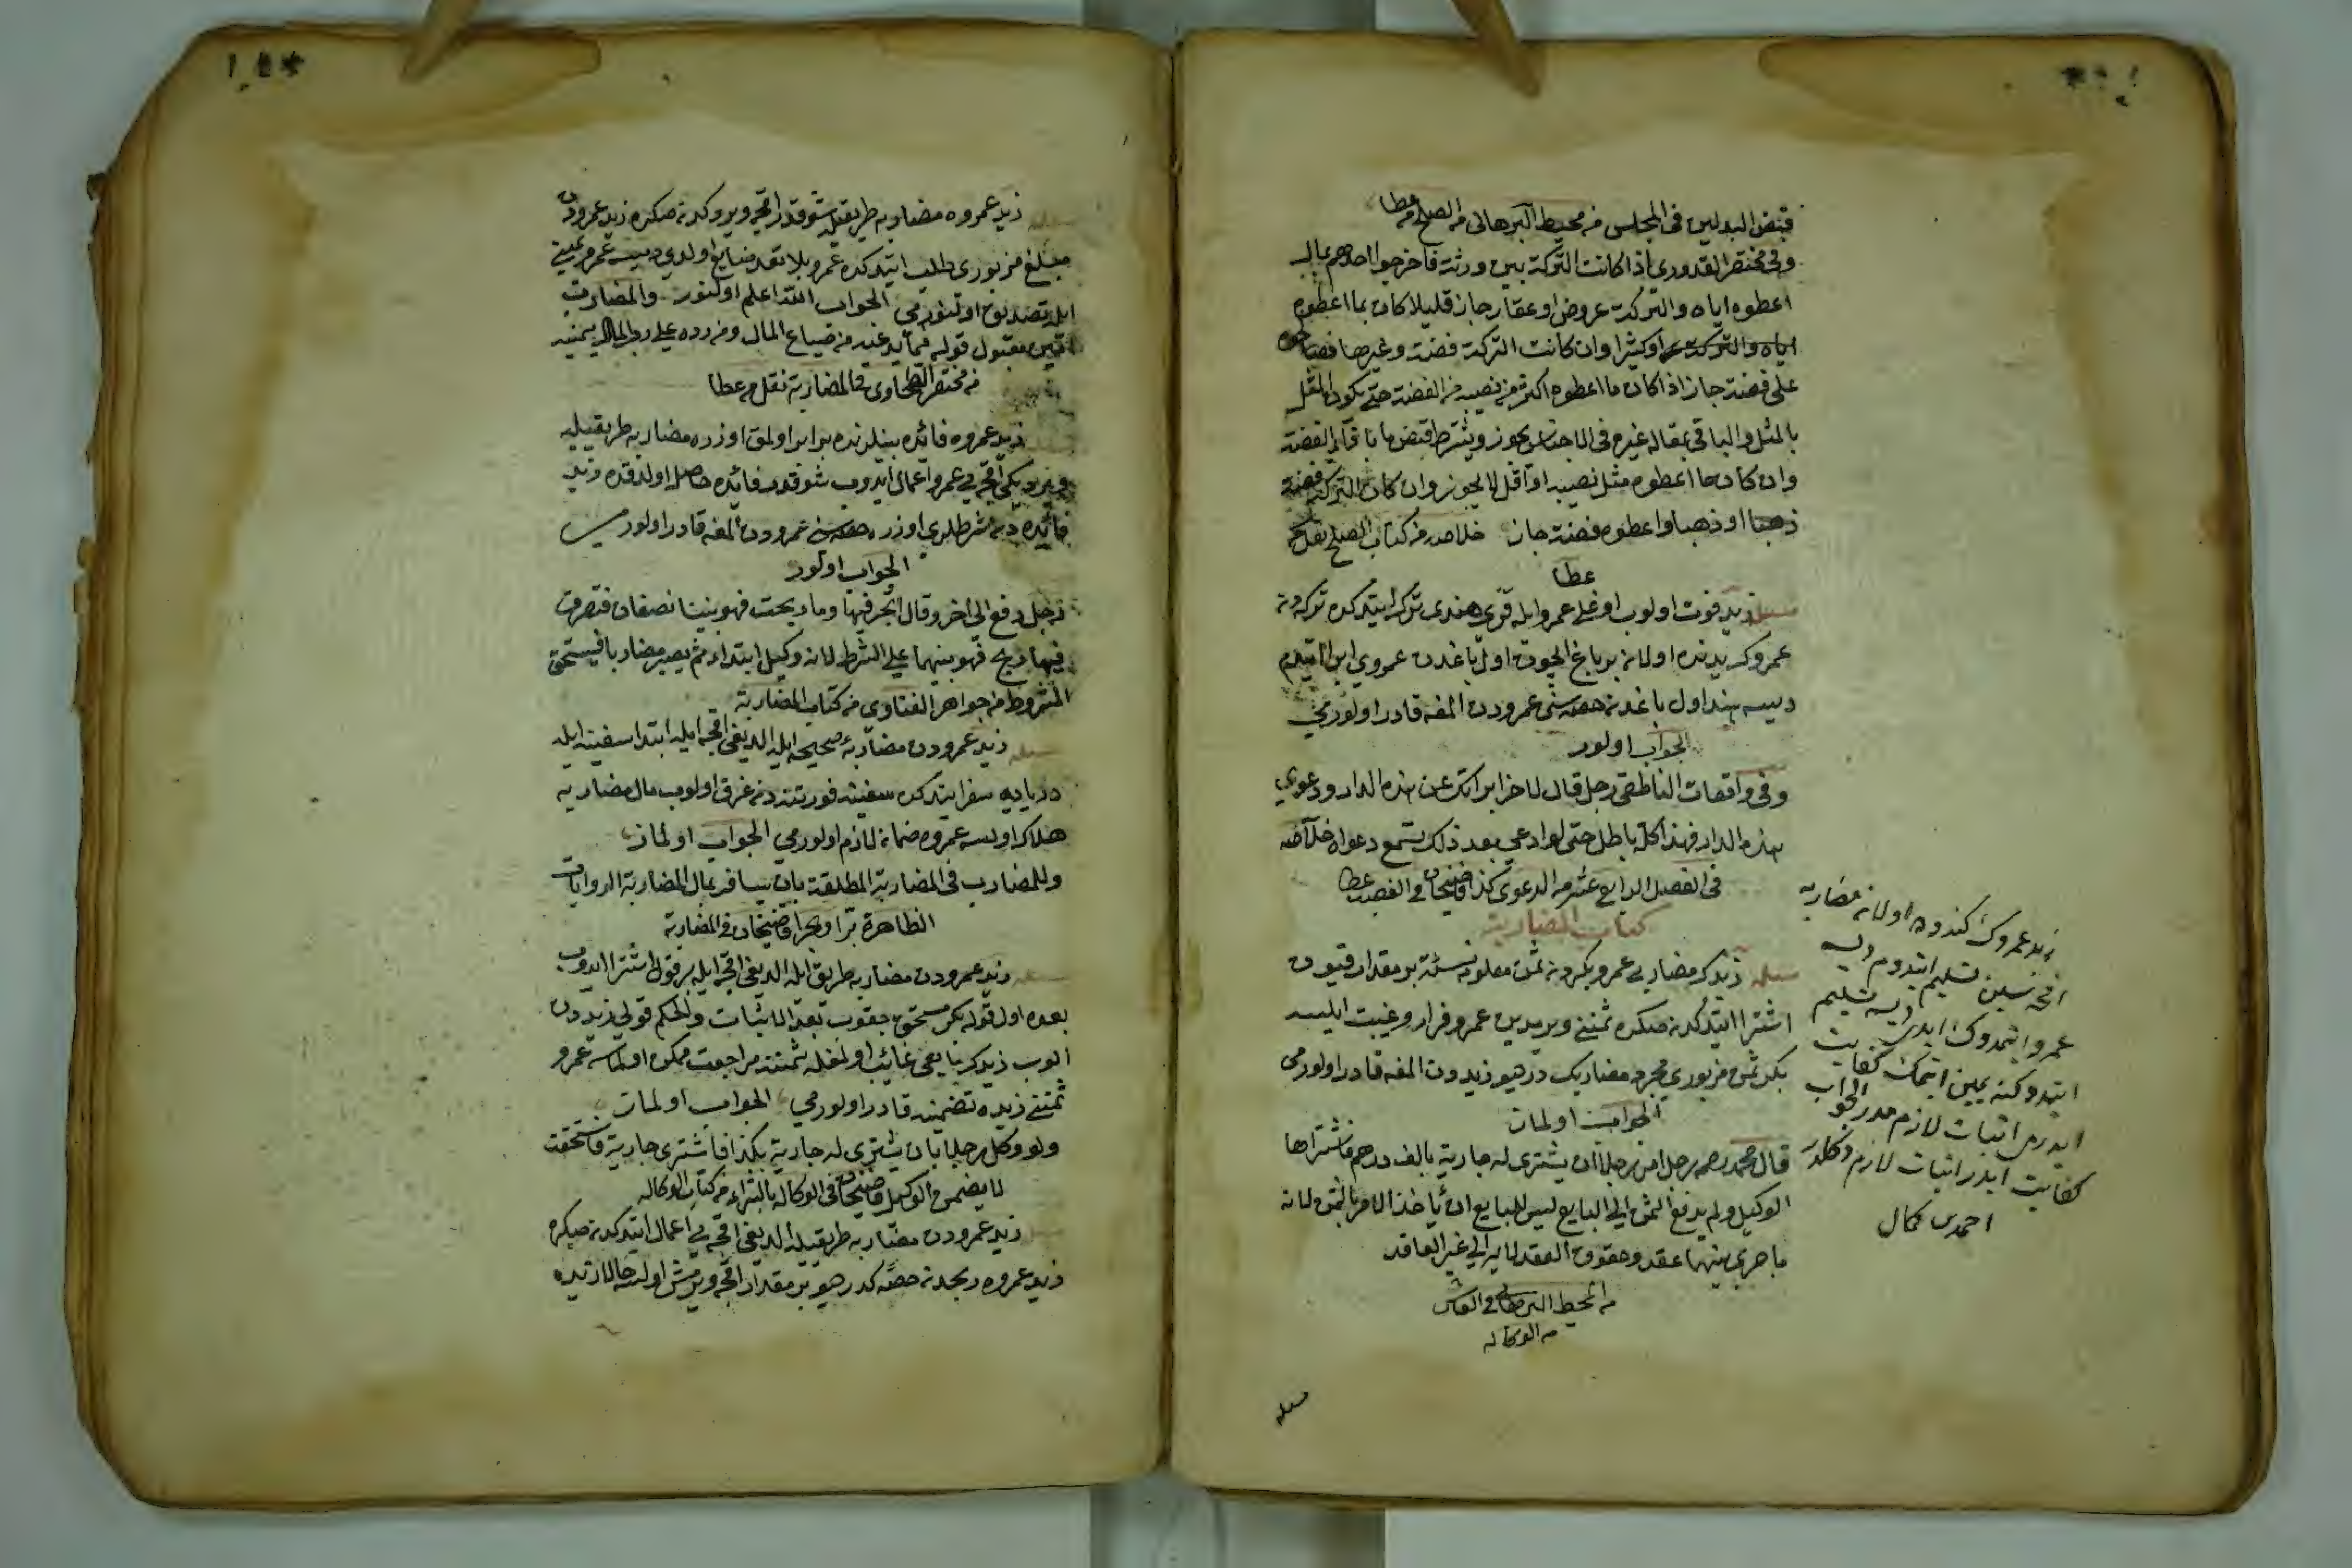 قبض البدلين فى المجلس من محيط البرهانى من الصلح عطا
وفى مختصر القدورى اذا كانت التركة بين ورثة فاخرجوا احدهم بمال
اعطوه اياه والتركة عروض او عقار جاز قليلا كان بما اعطوه
اياه والتركة او كثيرا وان كانت التركة فضة وغيرها فصالحوه
على فضة جاز اذا كان ما اعطوه اكثر من نصيبه من الفضة حتى يكون المثل
بالمثل والباقى بمقابله غيره فى الاجناس يجوز ويشترط قبض ما يقابل الفضة
وان كان ما اعطوه مثل نصيبه او اقل لا يجوز وان كان التركة فضة
ذهبا او ذهبا واعطوه فضة جاز خلاصه من كتاب الصلح نقل من
عطا
مسئله زيد فوت اولوب اوغلى عمرو ايله قزى هندى ترك ايتدكده تركه دن
عمروك يدنده اولان بر باغ ايچون اول باغدن عمروى ابرا ايتدم
ديسه هند اول باغدن حصه سنى عمرودن المغه قادر اولورمى
الجواب اولور
وفى واقعات الناطفى رجل قال لاخر ابراتك عن هذه الدار ودعوى
هذه الدار فهذا كله باطل حتى لو ادعى بعد ذلك تسمع دعواه خلاصه
فى الفصل الرابع عشر من الدعوى كذا قاضيخان فى الغصب عطا
كتاب المضاربة
مسئله زيدك مضاربى عمرو بكردن ثمن معلومه نسئة بر مقدار قيون
اشترا ايتدكدنصكره ثمننى ويرمدين عمرو فرار وغيبت ايلسه
بكر ثمن مزبورى مجرد مضاربك در ديو زيددن المغه قادر اولورمى
الجواب اولماز
قال محمد رحمه رجل امر رجلا ان يشترى له جارية بالف درهم فاشتراها
الوكيل ولم يدفع الثمن الى البايع ليس للبايع ان ياخذ الامر بالثمن لانه
ما جرى بينهما عقد وحقوق العقد لا يرى الى غير العاقد
من المحيط البرهانى فى العاشر
من الوكاله
مسئله
زيد عمروك كندوده اولان مضاربه
اقچه سين تسليم ايتدم ديسه
عمرو ايتمدوك ايدى ديسه تسليم
ايتدوكنه يمين ايتمك كفايت
ايدرمى اثبات لازم مدر الجواب
كفايت ايدر اثبات لازم دكلدر
احمد بن كمال
مسئله زيد عمروه مضاربه طريقيله شو قدر اقچه ويروكدنصكره زيد عمرودن
مبلغ مزبورى طلب ايتدكده عمرو بلا تعد ضايع اولدى ديسه عمرو يمينى
ايله تصديق اولنورمى الجواب الله اعلم اولنور والمضارب
امين مقبول قوله فيما يدعيه من ضياع المال ومن رده على رب المال بيمينه
من مختصر الطحاوى فى المضاربة نقل من عطا
زيد عمروه فائده بينلرنده برابر اولمق اوزره مضاربه طريقيله
ويرديكى اقچه يى عمرو اعمال ايدوب شو قدر فائده حاصل اولدقده زيد
فائده دن شرطلرى اوزره حصه سنى عمرودن المغه قادر اولورمى
الجواب اولور
رجل دفع الى اخر وقال اتجر فيها وما ربحت فهو بيننا نصفان فتصرف
فيها وربح فهو بينهما على الشرط لانه وكيل ابتداء ثم يصير مضاربا فيستحق
المشروط من جواهر الفتاوى من كتاب المضاربة
مسئله زيد عمرودن مضاربه صحيحه ايله الديغى اقچه ايله ابتدا سفينه ايله
درياده سفر ايتدكده سفينه فورتنه دن غرق اولوب مال مضاربه
هلاك اولسه عمروه ضمان لازم اولورمى الجواب اولماز
وللمضارب فى المضاربة المطلقة بان يسافر بمال المضاربة الروايات
الظاهرة برا وبحرا قاضيخان فى المضاربة
مسئله زيد عمرودن مضاربه طريق ايله الديغى اقچه ايله بر قول اشترا ايدوب
بعده اول قوله بكر مستحق چقوب بعد الاثبات والحكم قولى زيددن
الوب زيدك بايعى غائب اولمغله ثمننه مراجعت ممكن اولماسه عمرو
ثمننى زيده تضمينه قادر اولورمى الجواب اولماز
ولو وكل رجلا بان يشترى له جارية بكذا فاشترى جارية فاستحقت
لا يضمن الوكيل قاضيخان فى الوكالة بالشراء من كتاب الوكالة
مسئله زيد عمرودن مضاربه طريقيله الديغى اقچه يى اعمال ايتدكدنصكره
زيد عمروه ربحدن حصه كدر ديو بر مقدار اقچه ويرمش اولسه حالا زيده